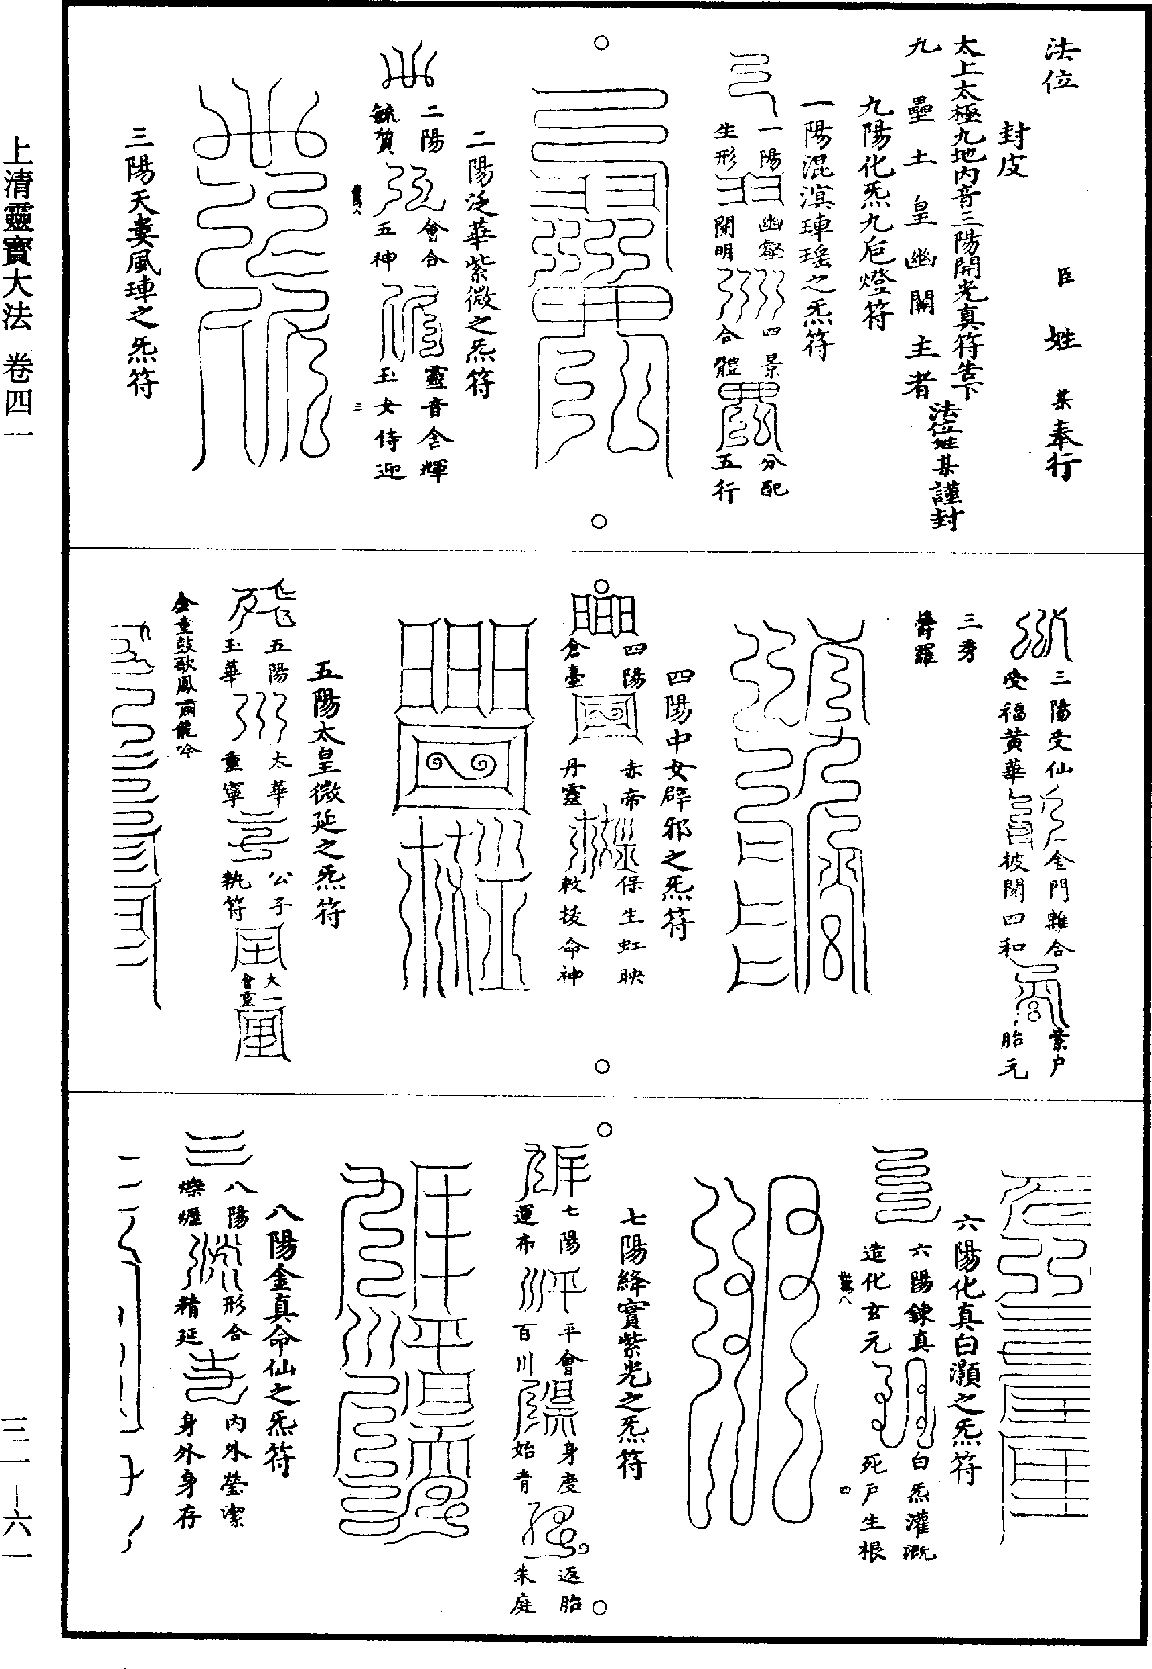 上清靈寶大法 卷四一
三一－六一
法位　臣　姓　某　奉行
封皮
太上太極九地內音三陽開光真符告下
九壘土皇幽關主者
法位姓某謹封
九陽化炁九巵燈符
一陽混滇琿瑤之炁符
一陽 幽壑 四景 分配
生形 開明 合體 五行
二陽泛華紫微之炁符
二陽 會合 靈音含輝
毓賀 五神 玉女侍迎
三
三陽天婁風琿之炁符
三陽受仙 金門難合 業户
受福黃華 披開四和 胎元
三秀
鬱羅
四陽中女辟邪之炁符
四陽 赤帝 保生虹映
倉臺 丹靈 救拔命神
五陽太皇微延之炁符
五陽 太華 公子 大一
玉華 重寧 執符 會靈
金童鼓歌鳳嘯龍吟
六陽化真白灝之炁符
六陽鍊真 白炁灌溉
造化玄元 死户生根
四
七陽絳實紫光之炁符
七陽 平會 身度 返胎
運布 百川 始青 朱庭
八陽金真命仙之炁符
八陽 形合 內外瑩潔
燦爛 精延 身外身存